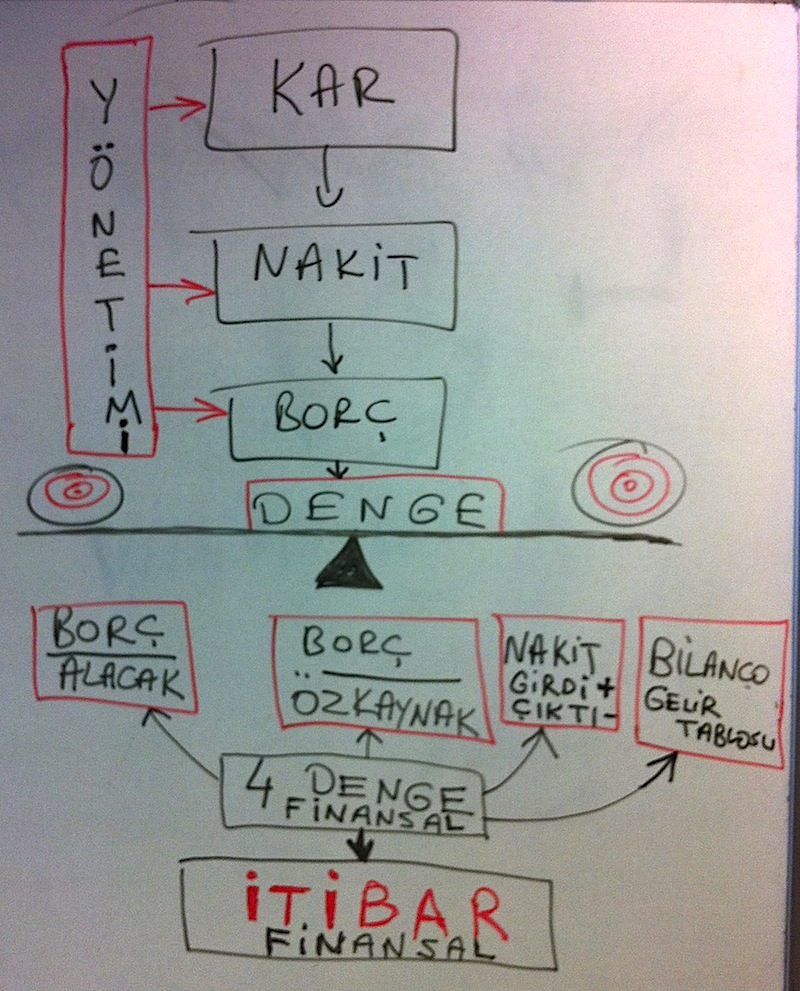 YÖNETİMİ
KAR
NAKİT
BORÇ
DENGE
BORÇ
ALACAK
BORÇ
ÖZKAYNAK
NAKİT
GİRDİ +
ÇIKTI -
BİLANÇO
GELİR
TABLOSU
4 DENGE
FİNANSAL
İTİBAR
FİNANSAL